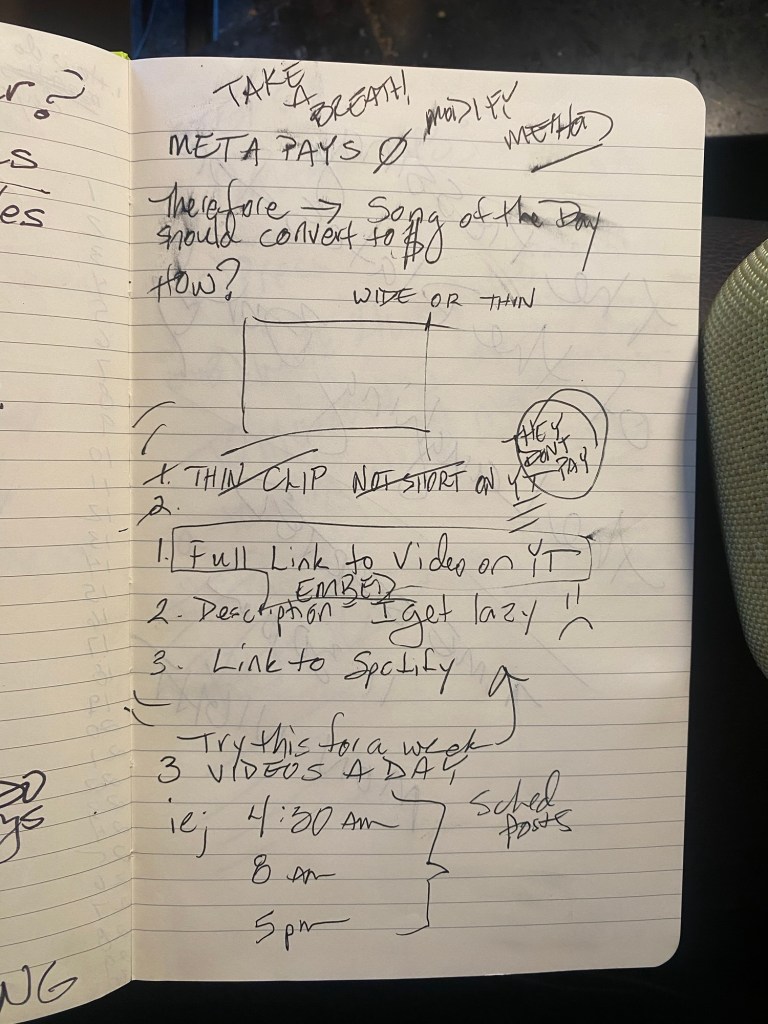 r?
s
es
ys
NG
TAKE
A
BREATH!
MODIFY
METHOD
META PAYS Ø
Therefore → Song of the Day
should convert to $
HOW?
WIDE OR THIN
HEY
DONT
PAY
1. THIN CLIP NOT SHORT ON YT
2.
1. Full Link to Video on YT
EMBED
2. Description I get lazy
3. Link to Spotify
Try this for a week
3 VIDEOS A DAY
ie; 4:30 AM
8 AM
5pm
Sched
Posts